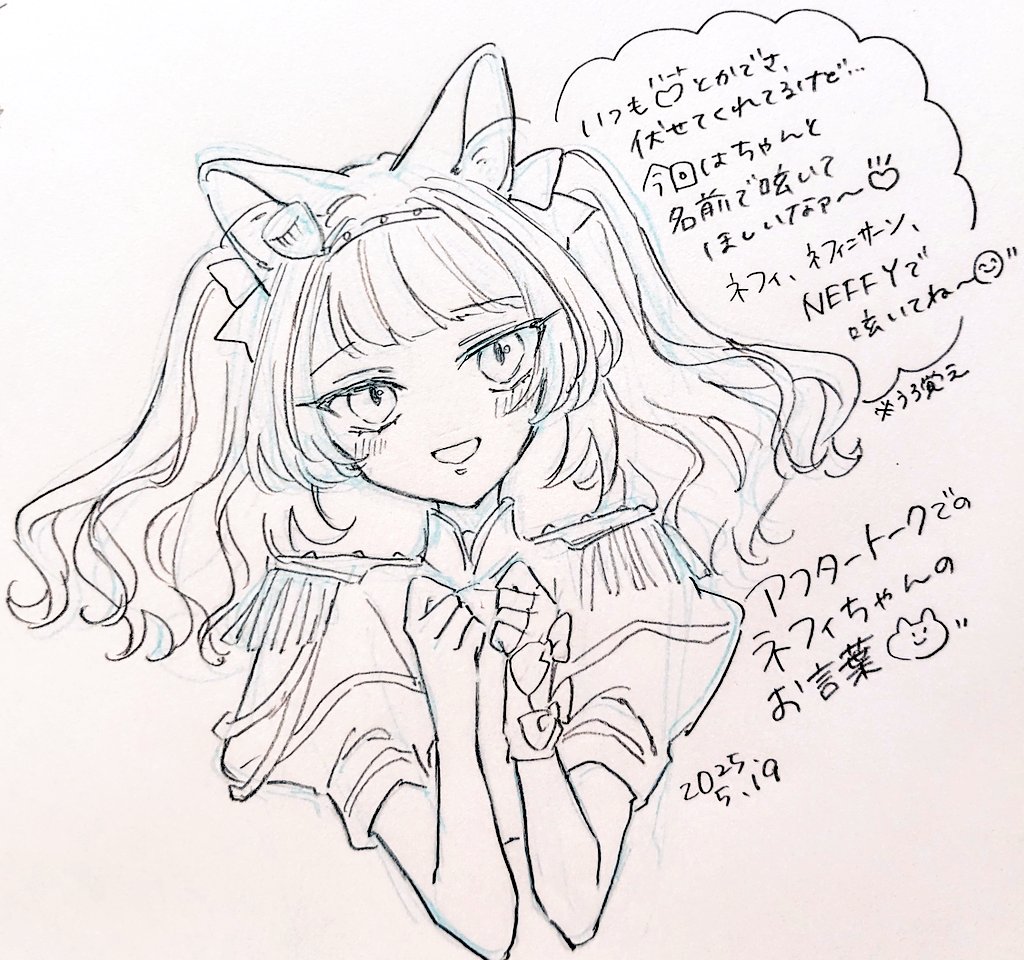 いつも♡とかでさ、
ハート
伏せてくれてるけど…
今回はちゃんと
名前で呟いて
ほしいなァ〜♡
ネフィ、ネフィ=サーン、
NEFFYで
呟いてね〜
※うろ覚え
アフタートークでの
ネフィちゃんの
お言葉
2025
5.19